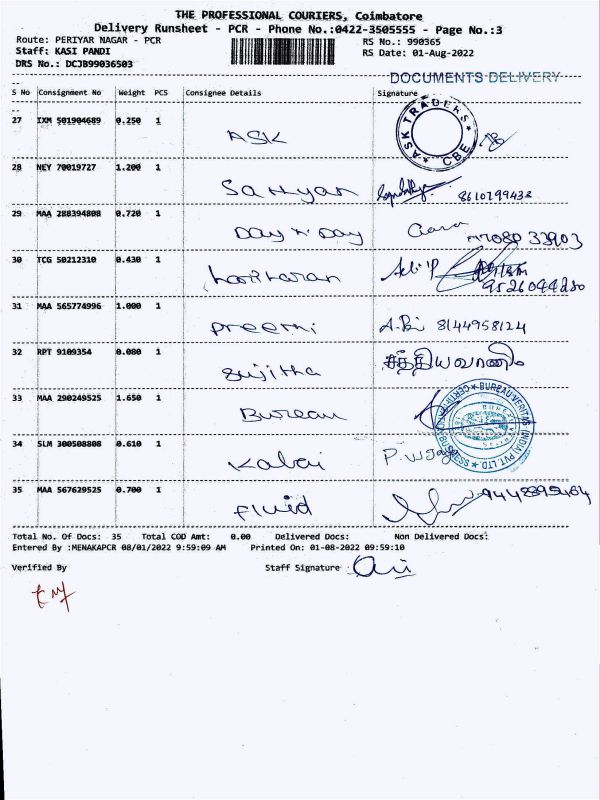 THE PROFESSIONAL COURIERS, Coimbatore
Delivery Runsheet - PCR - Phone No.:0422-3505555 - Page No.:3
Route: PERIYAR NAGAR - PCR RS No.: 990365
Staff: KASI PANDI RS Date: 01-Aug-2022
DRS No.: DCJB99036503
DOCUMENTS DELIVERY
S No Consignment No Weight PCS Consignee Details Signature
27 IXM 501904689 0.250 1 ASK ASK TRADERS CBE
28 NEY 70019727 1.200 1 Sathyan 8610799438
29 MAA 288394808 0.720 1 Day n Day 33903
30 TCG 50212310 0.430 1 hariharan
31 MAA 565774996 1.000 1 Preethi 8144958124
32 RPT 9109354 0.080 1 Sujitha சத்தியவாணி
33 MAA 290249525 1.650 1 Bureau BUREAU VERITAS (INDIA) PVT. LTD
34 SLM 300508808 0.610 1 Kalai
35 MAA 567629525 0.700 1 Fluid
Total No. Of Docs: 35 Total COD Amt: 0.00 Delivered Docs: Non Delivered Docs:
Entered By :MENAKAPCR 08/01/2022 9:59:09 AM Printed On: 01-08-2022 09:59:10
Verified By Staff Signature :